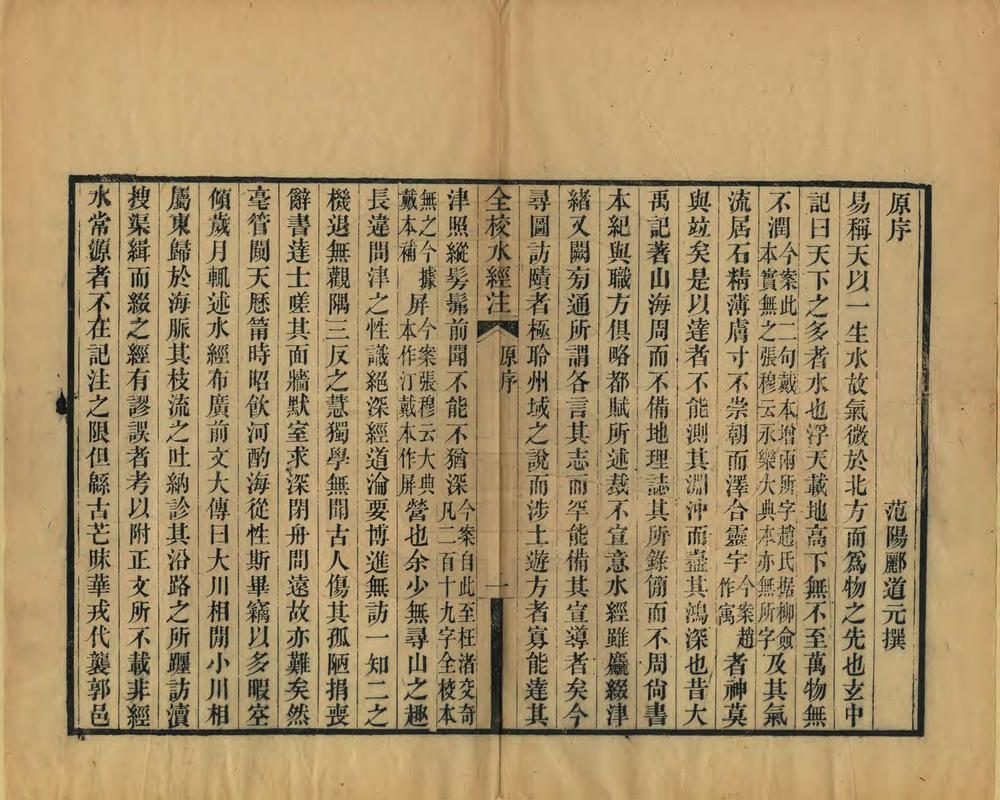 原序
范陽酈道元撰
易稱天以一生水故氣微於北方而爲物之先也玄中
記曰天下之多者水也浮天載地高下無不至萬物無
不潤今案此二句戴本增兩所字趙氏據柳僉本實無之張穆云永樂大典本亦無所字及其氣
流居石精薄膚寸不崇朝而澤合靈宇今案趙作寓者神莫
與竝矣是以達者不能測其淵沖而盡其鴻深也昔大
禹記著山海周而不備地理誌其所錄簡而不周尚書
本紀與職方俱略都賦所述裁不宣意水經雖麤綴津
緒又闕旁通所謂各言其志而罕能備其宣導者矣今
尋圖訪賾者極聆州域之說而涉土遊方者寡能達其
全校水經注
原序
一
津照縱髣髴前聞不能不猶深今案自此至枉渚交奇凡二百十九字全校本
無之今據戴本補屏今案張穆云大典本作汀戴本作屏營也余少無尋山之趣
長違問津之性識絕深經道淪要博進無訪一知二之
機退無觀隅三反之慧獨學無聞古人傷其孤陋捐喪
辭書達士嗟其面牆默室求深閉舟問遠故亦難矣然
毫管闚天歷筩時昭飲河酌海從性斯畢竊以多暇空
傾歲月輒述水經布廣前文大傳曰大川相閒小川相
屬東歸於海脈其枝流之吐納診其沿路之所躔訪瀆
搜渠緝而綴之經有謬誤者考以附正文所不載非經
水常源者不在記注之限但緜古芒昧華戎代襲郭邑